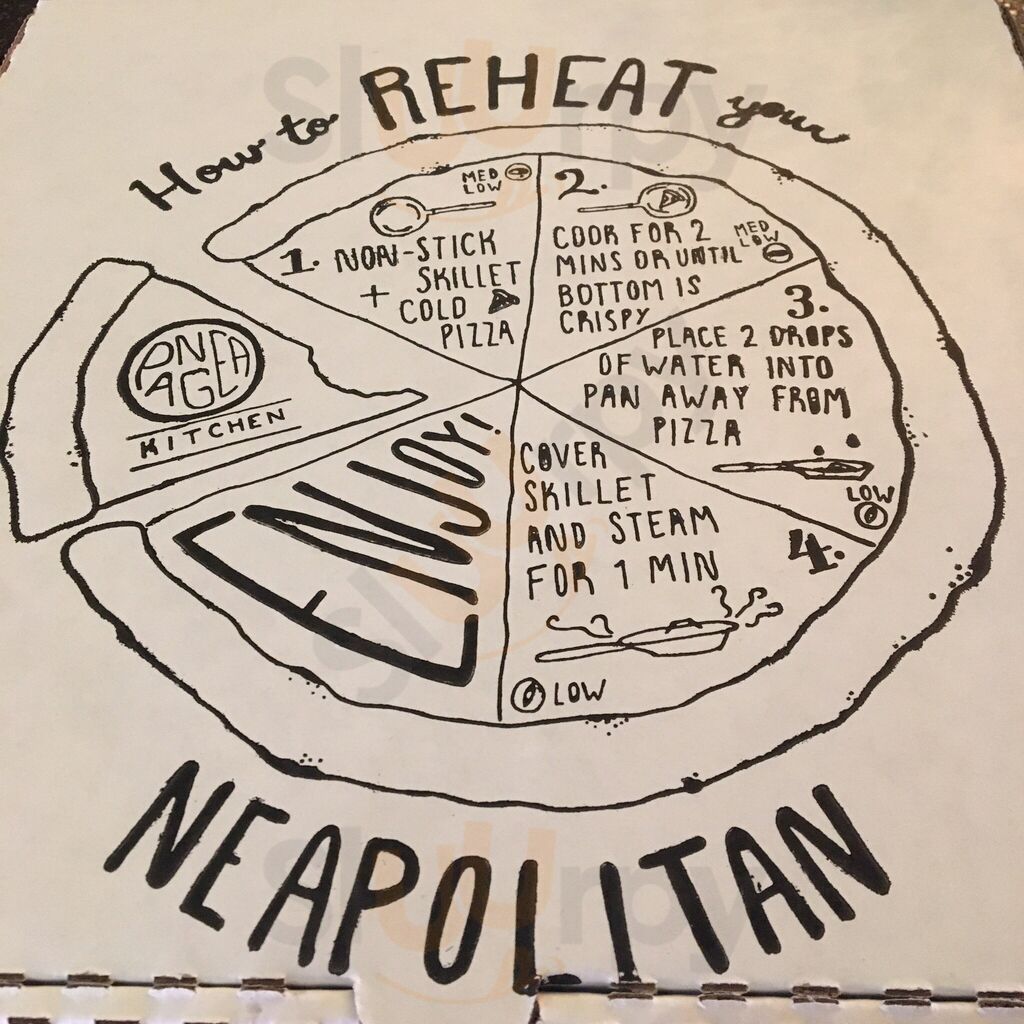 How to REHEAT your
MED
LOW
1. NON-STICK
SKILLET
+ COLD
PIZZA
2.
COOK FOR 2
MINS OR UNTIL
BOTTOM IS
CRISPY
MED
LOW
3.
PLACE 2 DROPS
OF WATER INTO
PAN AWAY FROM
PIZZA
LOW
4.
COVER
SKILLET
AND STEAM
FOR 1 MIN
LOW
ENJOY!
PANGEA
KITCHEN
NEAPOLITAN
slurpy
slurpy
slurpy